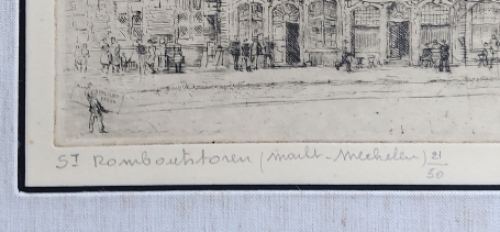 ST Romboutstoren (markt - Mechelen) 21/50